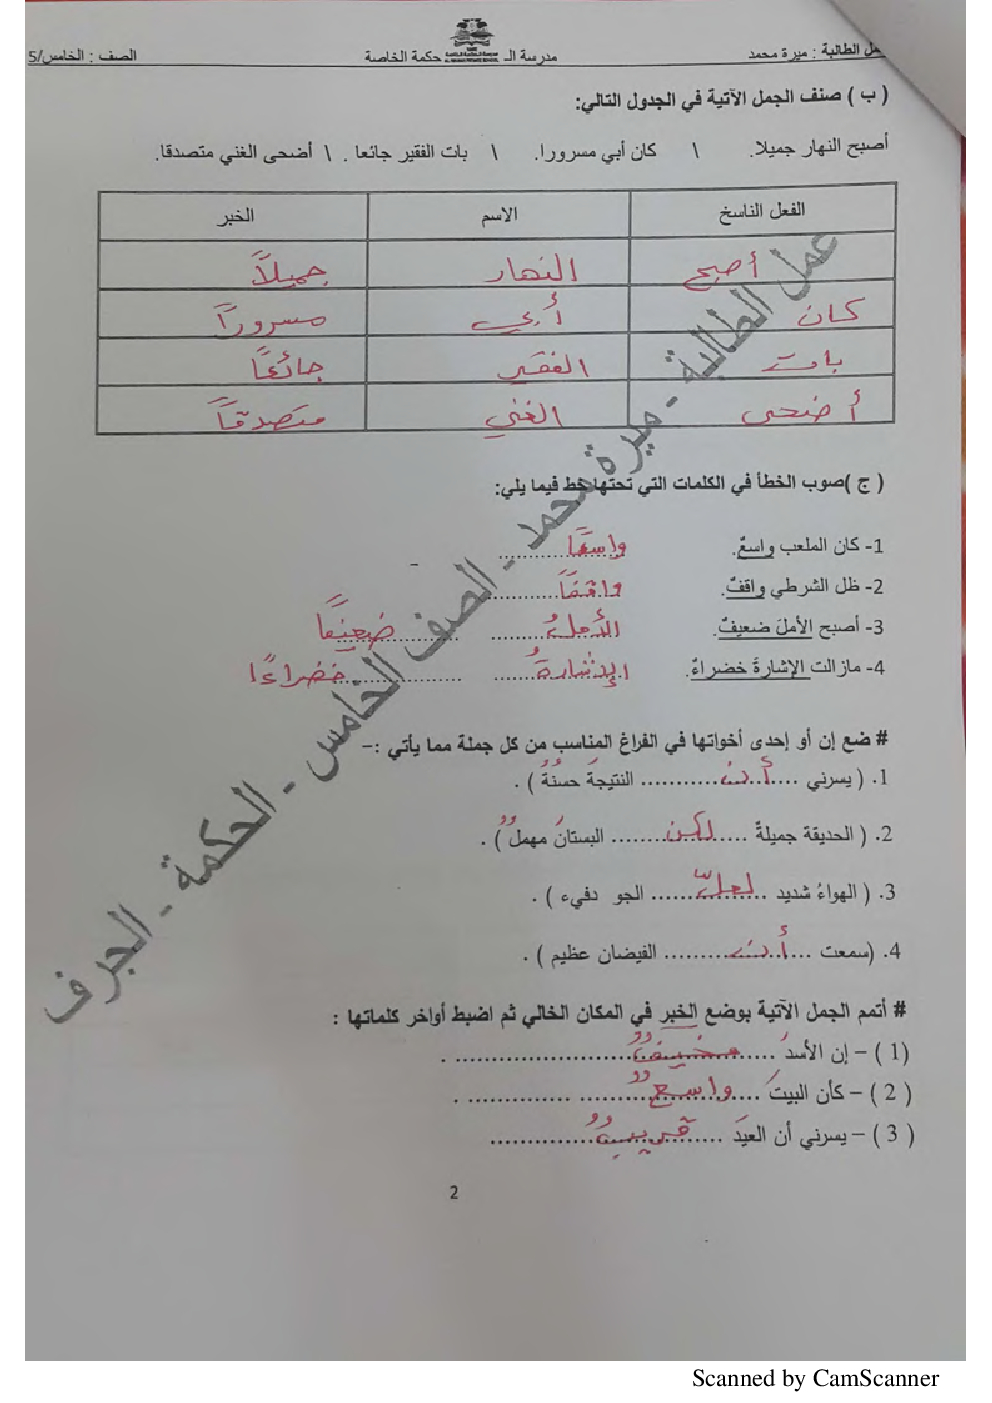 عمل الطالبة : ميرة محمد   مدرسة الـ حكمة الخاصة   الصف : الخامس/5
( ب ) صنف الجمل الآتية في الجدول التالي:
أصبح النهار جميلا. \ كان أبي مسرورا. \ بات الفقير جائعا . \ أضحى الغني متصدقا.
الفعل الناسخ   الاسم   الخبر
أصبح   النهار   جميلاً
كان   أبي   مسروراً
بات   الفقير   جائعاً
أضحى   الغني   متصدقاً
( ج )صوب الخطأ في الكلمات التي تحتها خط فيما يلي:
1- كان الملعب واسعٌ. واسعًا
2- ظل الشرطي واقفٌ. واقفًا
3- أصبح الأملَ ضعيفٌ. الأملُ ضعيفًا
4- مازالت الإشارةَ خضراءٌ. الإشارةُ خضراءًا
# ضع إن أو إحدى أخواتها في الفراغ المناسب من كل جملة مما يأتي :-
1. ( يسرني ....أن........... النتيجةَ حسنةٌ ) .
2. ( الحديقة جميلةٌ .....لكن........ البستانَ مهملٌ ) .
3. ( الهواءُ شديد .....لعلّ........ الجو دفيء ) .
4. (سمعت .....أن........... الفيضان عظيم ) .
# أتمم الجمل الآتية بوضع الخبر في المكان الخالي ثم اضبط أواخر كلماتها :
(1 ) – إن الأسدَ .....مخيفٌ.......................... .
( 2 ) – كأن البيتَ ....واسعٌ............ .............. .
( 3 ) – يسرني أن العيدَ ........قريبٌ....................
2
عمل الطالبة - ميرة محمد - الصف الخامس - الحكمة - الجرف
Scanned by CamScanner